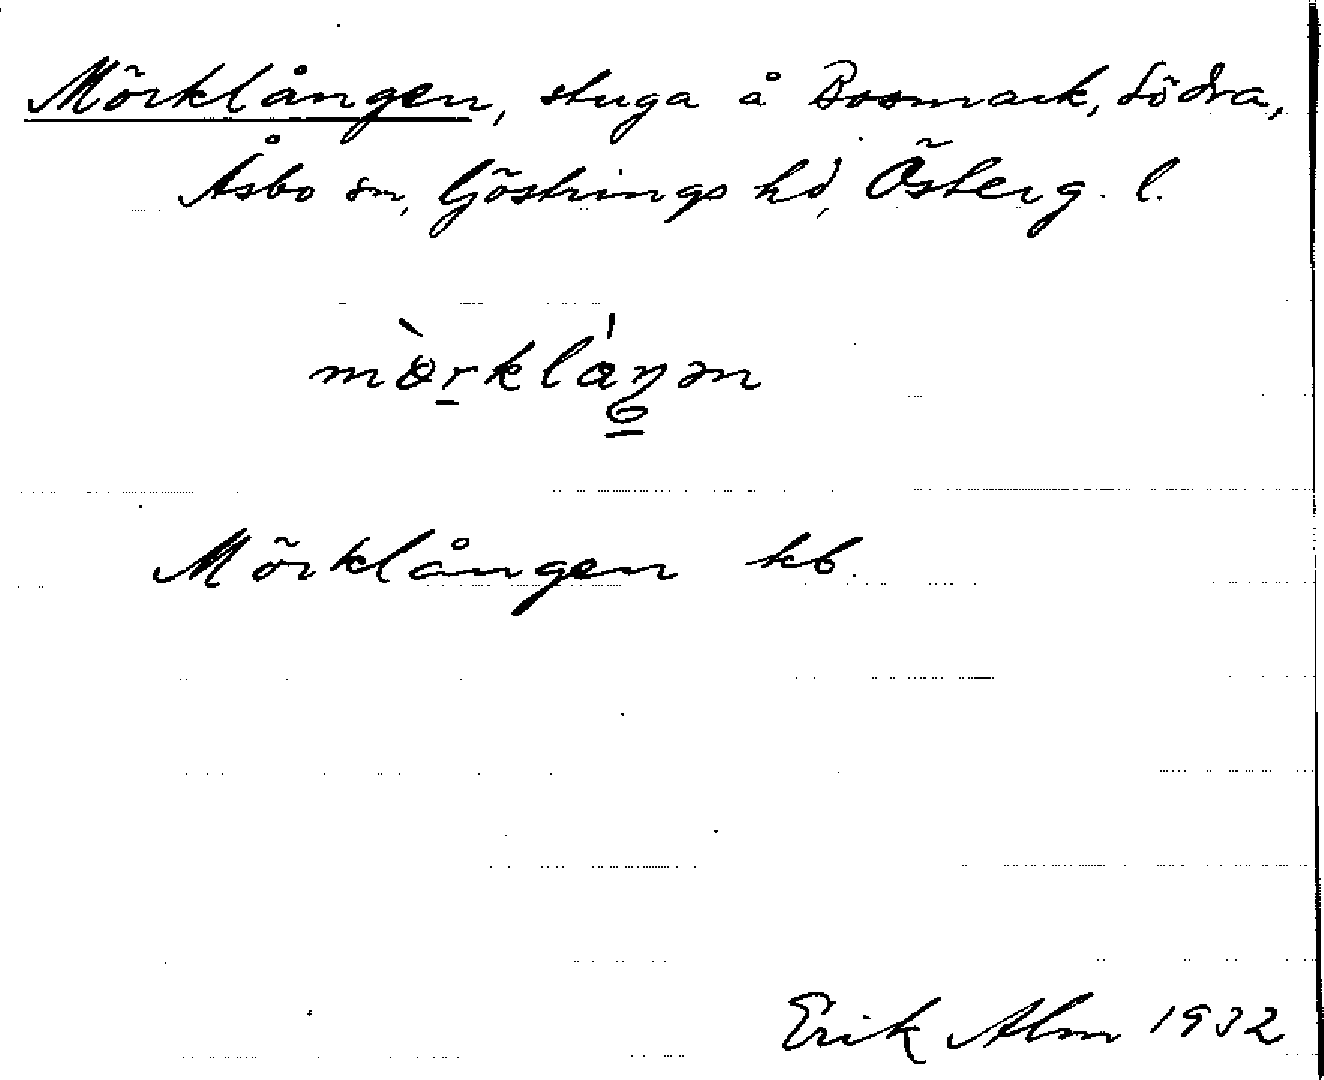 Mörklången, stuga å Bosmark, södra,
Åsbo sn, Göstrings hd, Österg. l.
mòrkláŋən
Mörklången kb.
Erik Alm 1932